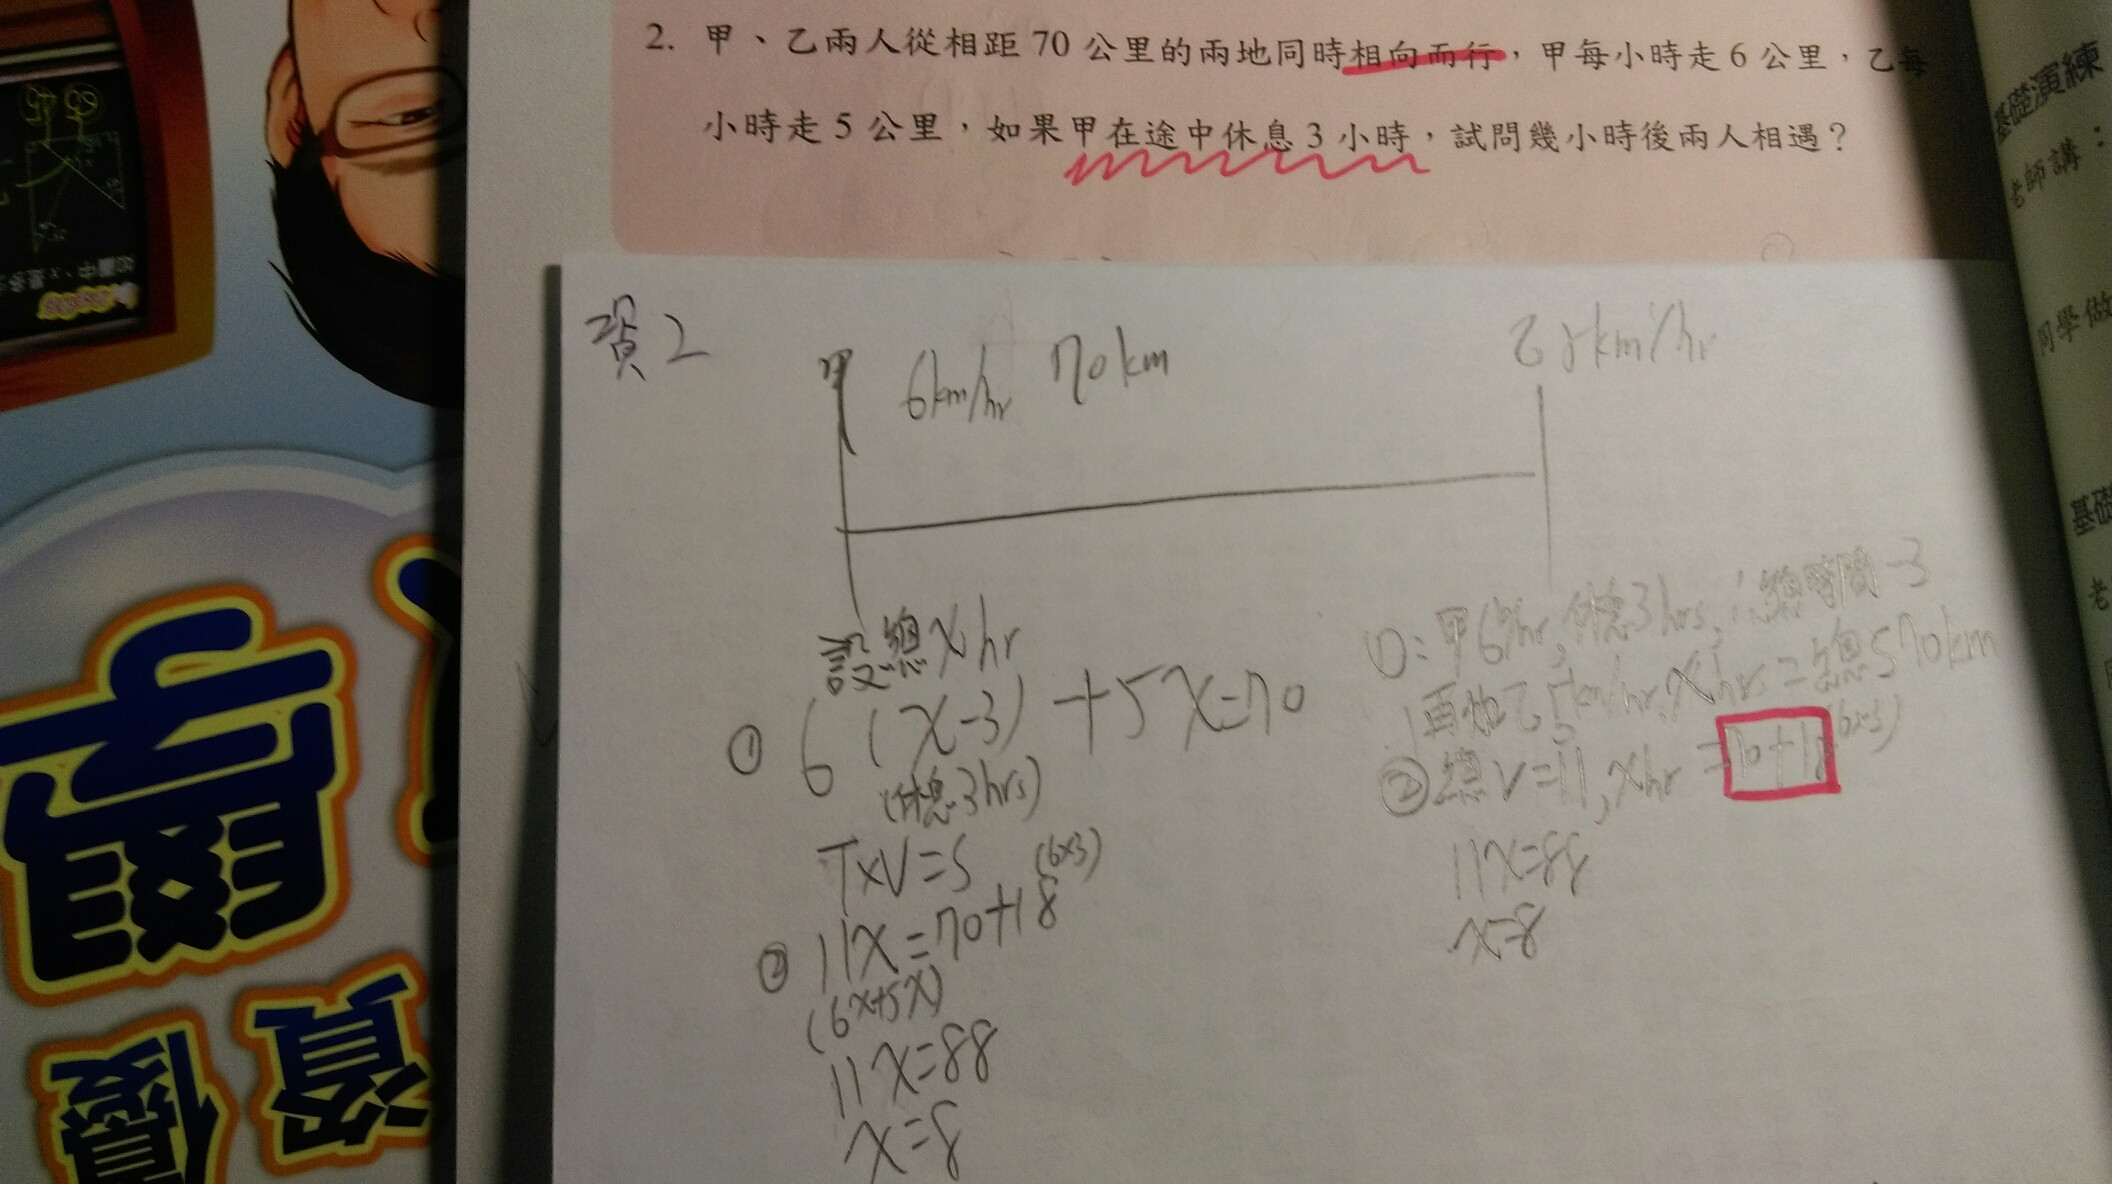 2. 甲、乙兩人從相距 70 公里的兩地同時相向而行，甲每小時走 6 公里，乙每
小時走 5 公里，如果甲在途中休息 3 小時，試問幾小時後兩人相遇？
資2
甲 6km/hr 70km
乙 5km/hr
設總 x hr
① 6 (x-3) +5x=70
(休息3hrs)
T×V=S
② 11x=70+18 (6×3)
(6x+5x)
11x=88
x=8
①: 甲6 /hr, 休息3hrs, ∴總時間-3
再加乙5km/hr, xhrs=總S70km
②總V=11, xhr =70+18 (6×3)
11x=88
x=8
基礎演練
老師講：
同學做
基礎
老
學
資
優